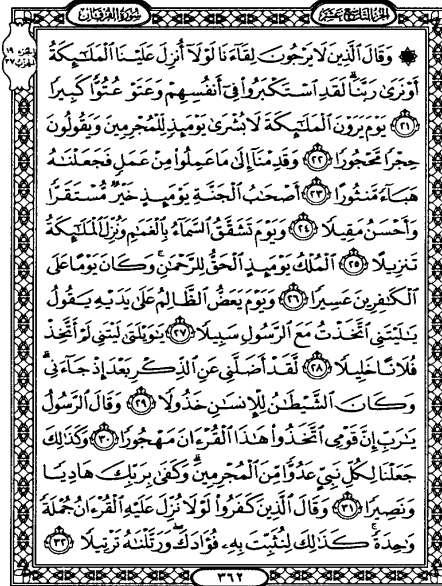 سورة الفرقان
الجزء التاسع عشر
۞ وَقَالَ ٱلَّذِينَ لَا يَرْجُونَ لِقَآءَنَا لَوْلَآ أُنزِلَ عَلَيْنَا ٱلْمَلَٰٓئِكَةُ
أَوْ نَرَىٰ رَبَّنَا ۗ لَقَدِ ٱسْتَكْبَرُوا۟ فِىٓ أَنفُسِهِمْ وَعَتَوْ عُتُوًّا كَبِيرًا
٢١ يَوْمَ يَرَوْنَ ٱلْمَلَٰٓئِكَةَ لَا بُشْرَىٰ يَوْمَئِذٍ لِّلْمُجْرِمِينَ وَيَقُولُونَ
حِجْرًا مَّحْجُورًا ٢٢ وَقَدِمْنَآ إِلَىٰ مَا عَمِلُوا۟ مِنْ عَمَلٍ فَجَعَلْنَٰهُ
هَبَآءً مَّنثُورًا ٢٣ أَصْحَٰبُ ٱلْجَنَّةِ يَوْمَئِذٍ خَيْرٌ مُّسْتَقَرًّا
وَأَحْسَنُ مَقِيلًا ٢٤ وَيَوْمَ تَشَقَّقُ ٱلسَّمَآءُ بِٱلْغَمَٰمِ وَنُزِّلَ ٱلْمَلَٰٓئِكَةُ
تَنزِيلًا ٢٥ ٱلْمُلْكُ يَوْمَئِذٍ ٱلْحَقُّ لِلرَّحْمَٰنِ ۚ وَكَانَ يَوْمًا عَلَى
ٱلْكَٰفِرِينَ عَسِيرًا ٢٦ وَيَوْمَ يَعَضُّ ٱلظَّالِمُ عَلَىٰ يَدَيْهِ يَقُولُ
يَٰلَيْتَنِى ٱتَّخَذْتُ مَعَ ٱلرَّسُولِ سَبِيلًا ٢٧ يَٰوَيْلَتَىٰ لَيْتَنِى لَمْ أَتَّخِذْ
فُلَانًا خَلِيلًا ٢٨ لَّقَدْ أَضَلَّنِى عَنِ ٱلذِّكْرِ بَعْدَ إِذْ جَآءَنِى ۗ
وَكَانَ ٱلشَّيْطَٰنُ لِلْإِنسَٰنِ خَذُولًا ٢٩ وَقَالَ ٱلرَّسُولُ
يَٰرَبِّ إِنَّ قَوْمِى ٱتَّخَذُوا۟ هَٰذَا ٱلْقُرْءَانَ مَهْجُورًا ٣٠ وَكَذَٰلِكَ
جَعَلْنَا لِكُلِّ نَبِىٍّ عَدُوًّا مِّنَ ٱلْمُجْرِمِينَ ۗ وَكَفَىٰ بِرَبِّكَ هَادِيًا
وَنَصِيرًا ٣١ وَقَالَ ٱلَّذِينَ كَفَرُوا۟ لَوْلَا نُزِّلَ عَلَيْهِ ٱلْقُرْءَانُ جُمْلَةً
وَٰحِدَةً ۚ كَذَٰلِكَ لِنُثَبِّتَ بِهِۦ فُؤَادَكَ ۖ وَرَتَّلْنَٰهُ تَرْتِيلًا ٣٢
٣٦٢